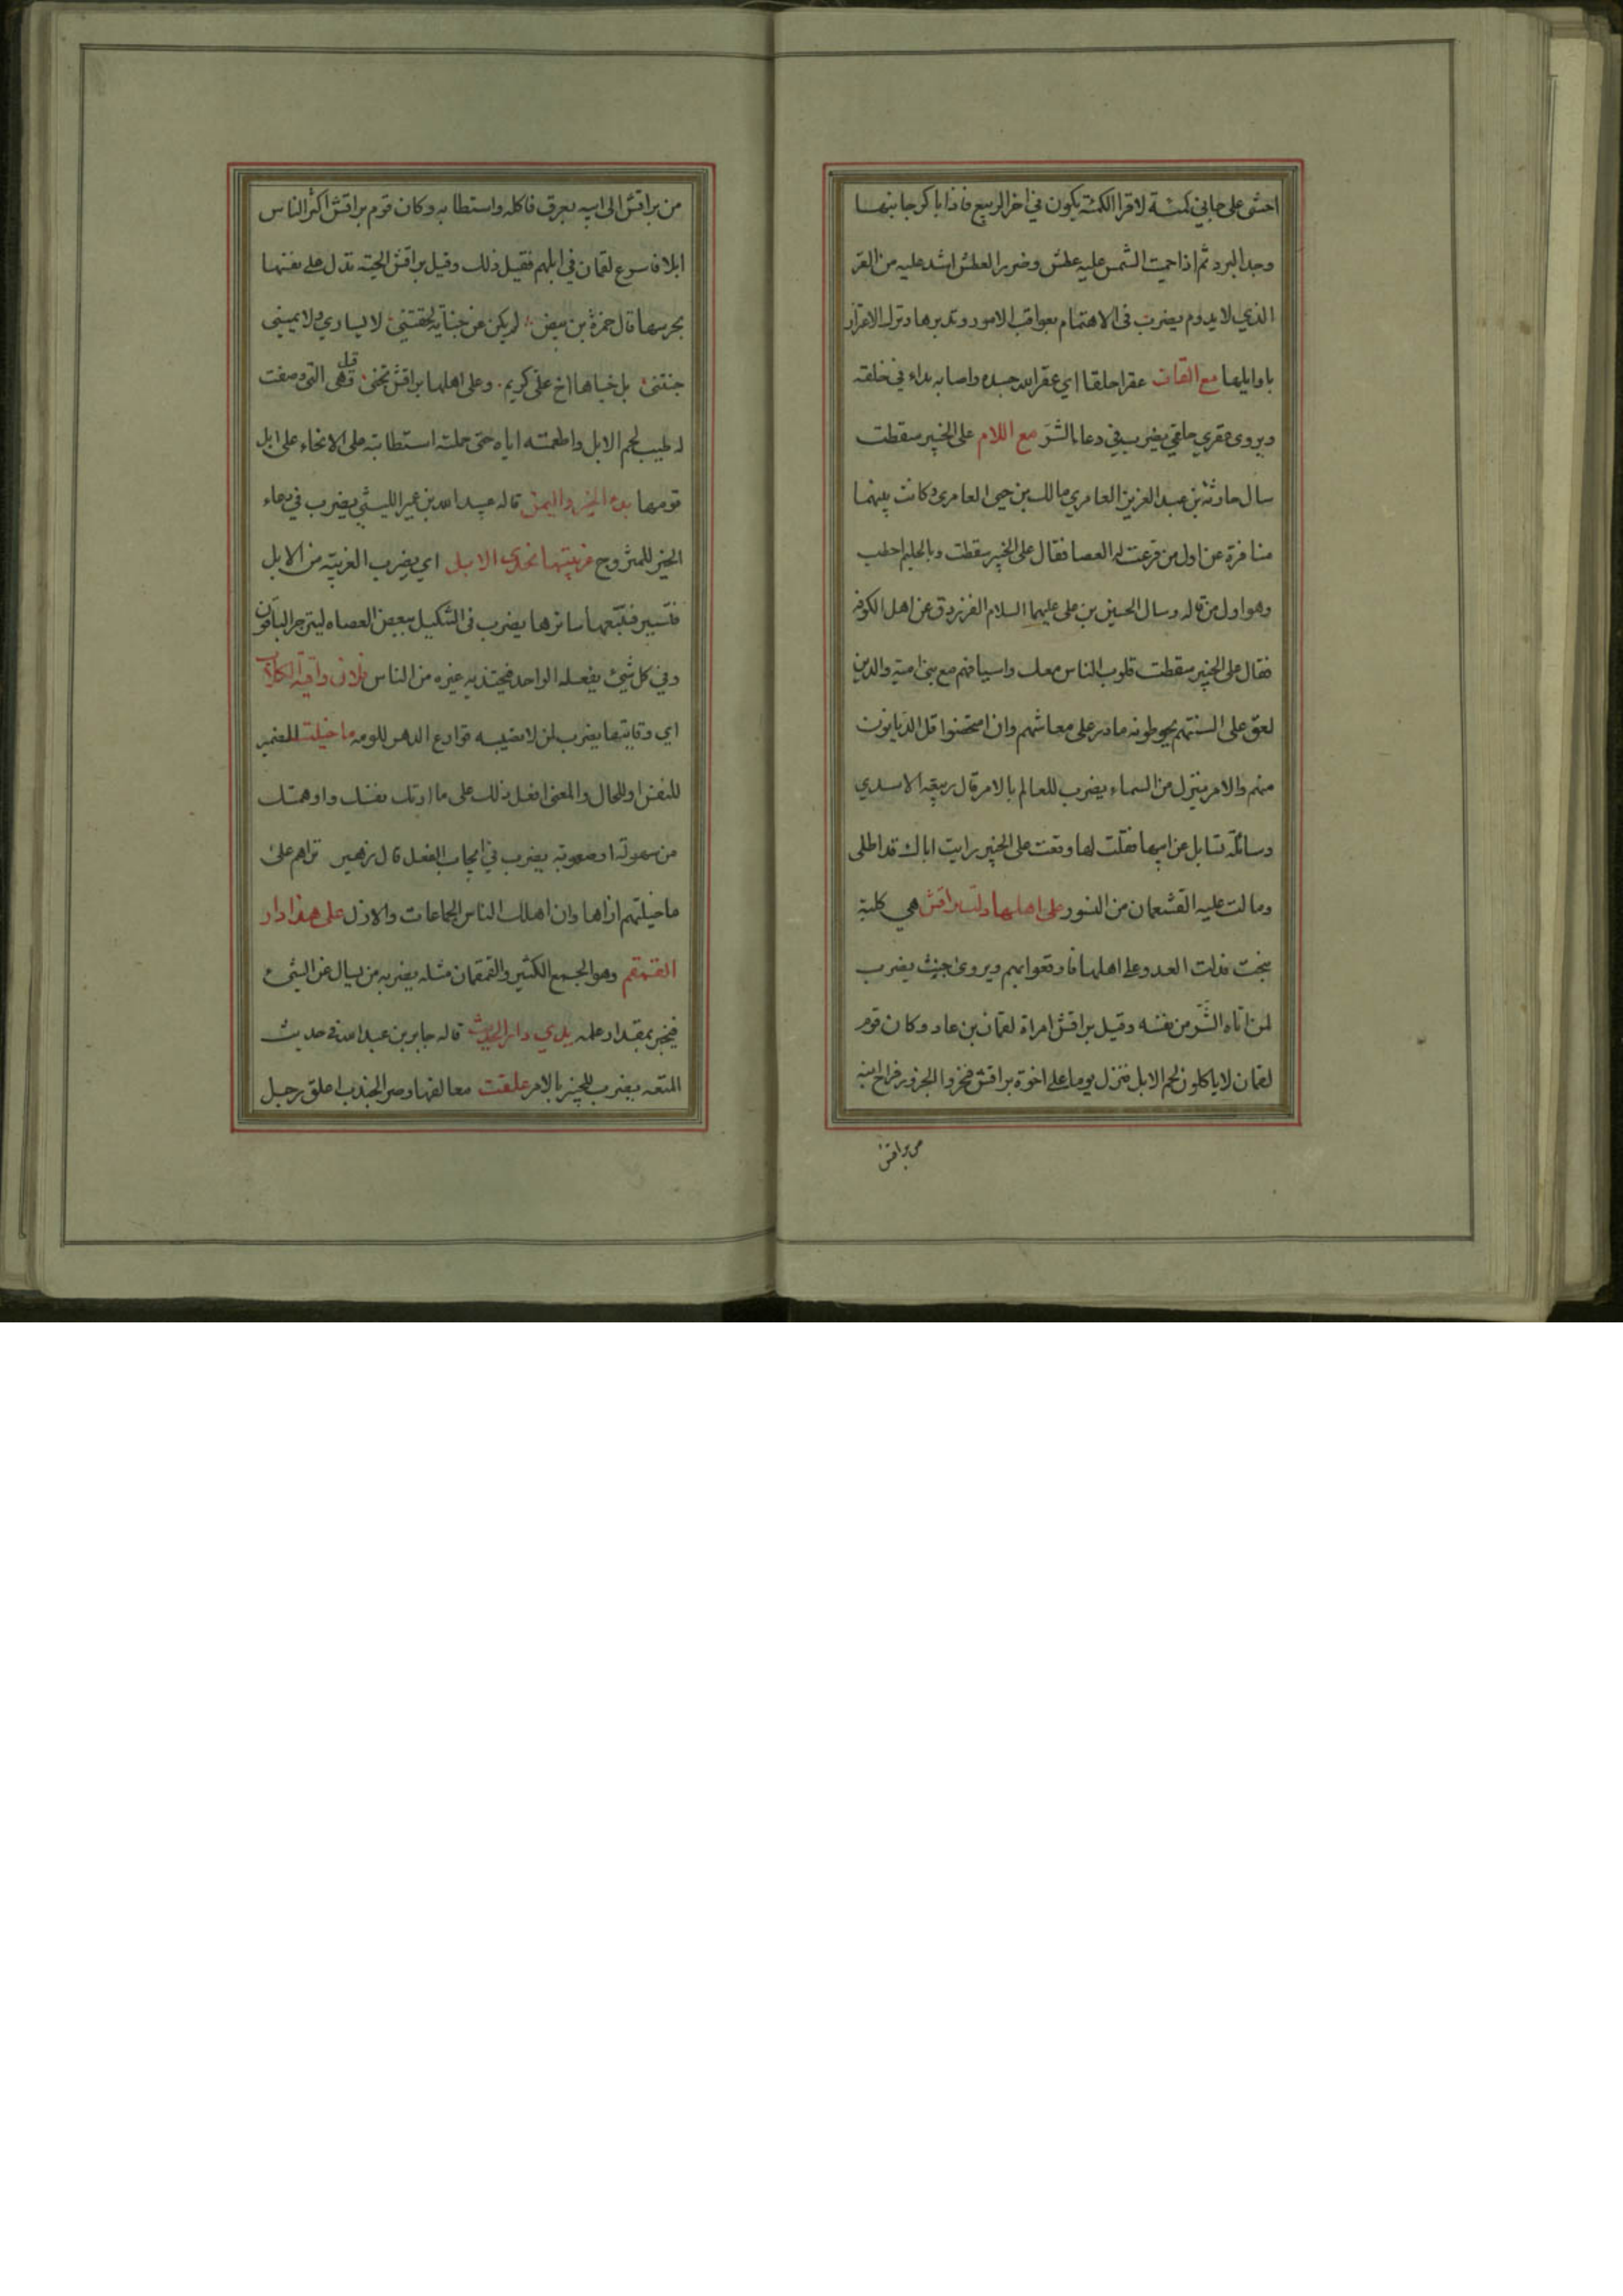 اخشى على جابي كمئة لا قرا الكمئة يكون في اخر الربيع فاذا باكر جانيها
وجد البرد ثم اذا حميت الشمس عليه عطش وضرر العطش اشد عليه من القر
الذي لا يدوم يضرب فى الاهتمام بعواقب الامور وتدبرها وترك الاغترار
باوايلها مع القاف عقرا حلقا اي عقر الله جسده واصابه بداء في حلقه
ويروى عقرى حلقى يضرب في دعاء الشر مع اللام على الخبير سقطت
سال حارثة بن عبد العزيز العامري مالك بن حيى العامرى وكانت بينهما
منافرة عن اول من قرعت له العصا فقال على الخبير سقطت وبالحليم احطت
وهو اول من قاله وسال الحسين بن على عليهما السلام الفرزدق عن اهل الكوفه
فقال على الخبير سقطت قلوب الناس معك واسيافهم مع بنى امية والدين
لعق على السنتهم يحوطونه ما در على معاشهم وان امتحنوا قل الديانون
منهم والامر ينزل من السماء يضرب للعالم بالامر قال ربيعة الاسدي
وسائلة تسايل عن ابيها فقلت لها وقعت على الخبير رايت اباك قد اطلى
ومالت عليه القشعمان من النسور على اهلها دلت براقش هي كلبة
نبحت فدلت العدو على اهلها فاوقعوا بهم ويروى جنت يضرب
لمن اتاه الشر من نفسه وقيل براقش امراة لقمان بن عاد وكان قوم
لقمان لا ياكلون لحم الابل فنزل يوما على اخوة براقش فنحروا الجزور فراح ابنه
من براقش
من براقش الى ابيه بعرق فاكله واستطابه وكان قوم براقش اكثر الناس
ابلا فاسرع لقمان في ابلهم فقيل ذلك وقيل براقش الحية تدل على نفسها
بجرسها قال حمزة بن بيض لم يكن عن جناية لحقتنى لا يساري ولا يمينى
جنتنى بل جناها اخ على كريم وعلى اهلها براقش تجنى قيل وهى التى وصفت
له طيب لحم الابل واطعمته اياه حتى حملته استطابته على الانحاء على ابل
قومها بدء الخير واليمن قاله عبيد الله بن عمير الليثى يضرب في دعاء
الخير للمتزوج غريبتها تحدى الابل اي بضرب الغريبة من الابل
فتسير فتتبعها سائرها يضرب فى التنكيل ببعض العصاه لينزجر الباقون
وفي كل شيئ يفعله الواحد فيحتذيه غيره من الناس فلان واقية الكلاب
اي وقايتها يضرب لمن لا تصيبه قوارع الدهر للومه ما خيلت الضمير
للنفس او للحال والمعنى افعل ذلك على ما ارتك نفسك واوهمتك
من سهولة او صعوبة يضرب في ايجاب الفعل قال زهير تراهم على
ما خيلتهم ازاها وان اهلك الناس الجماعات والازل على هذا دار
القمقم وهو الجمع الكثير والقمقمان مثله يضربه من يسال عن الشيء
فيخبر بمقدار علمه يدي دار الحديث قاله جابر بن عبد الله في حديث
المتعه يضرب للخبير بالامر علقت معالقها وصر الجندب اعلق رجل